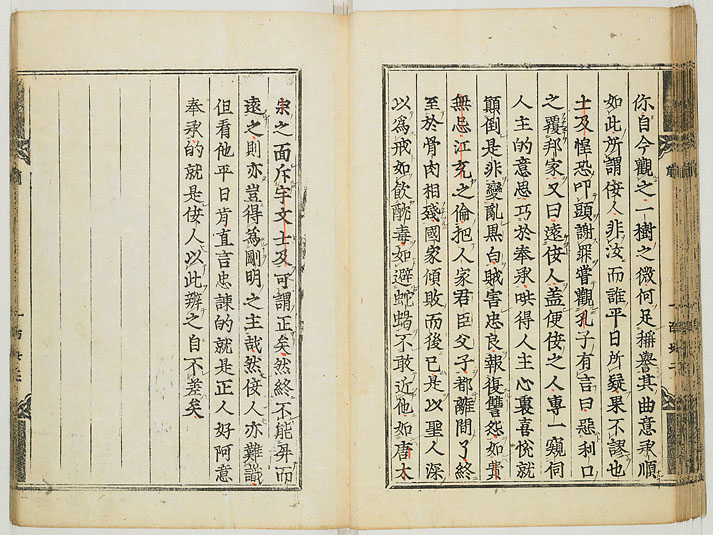 你自今觀之一樹之微何足稱譽其曲意承順
如此所謂佞人非汝而誰平日所疑果不謬也
士及惶恐叩頭謝罪嘗觀孔子有言曰惡利口
之覆邦家又曰遠佞人蓋便佞之人專一窺伺
人主的意思巧於奉承哄得人主心裏喜悅就
顛倒是非變亂黒白賊害忠良報復讐怨如費
無忌江充之倫把人家君臣父子都離間了終
至於骨肉相殘國家傾敗而後已是以聖人深
以為戒如飲酖毒如避蛇蝎不敢近他如唐太
宗之面斥宇文士及可謂正矣然終不能屏而
遠之則亦豈得為剛明之主哉然佞人亦難識
但看他平日肯直言忠諫的就是正人好阿意
奉承的就是佞人以此辨之自不差矣